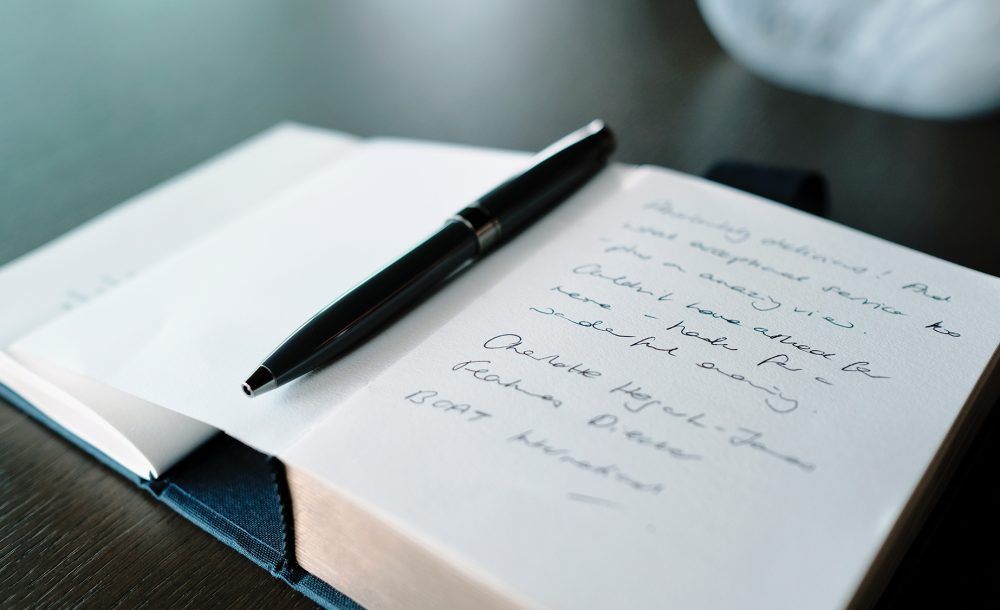 Absolutely delicious! And
what exceptional service too
- plus an amazing view.
Couldn't have asked for
more - made for a
wonderful evening.
Charlotte Hogarth-Jones
Features Director
BOAT International